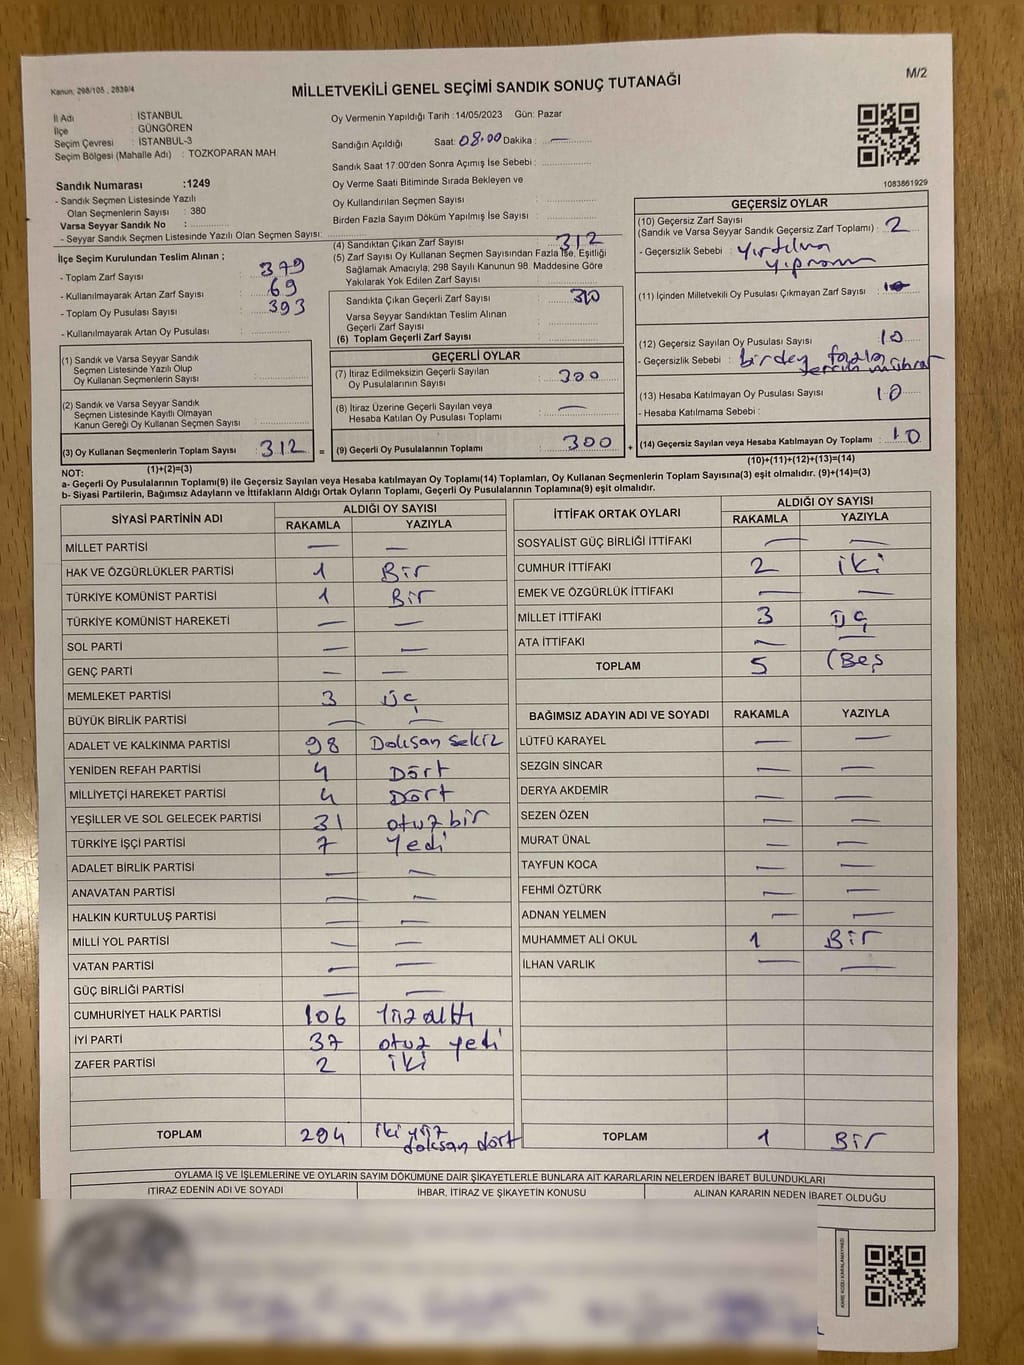 Kanun, 298/105 , 2839/4
MİLLETVEKİLİ GENEL SEÇİMİ SANDIK SONUÇ TUTANAĞI
M/2
İl Adı : İSTANBUL
İlçe : GÜNGÖREN
Seçim Çevresi : İSTANBUL-3
Seçim Bölgesi (Mahalle Adı) : TOZKOPARAN MAH
Sandık Numarası :1249
- Sandık Seçmen Listesinde Yazılı
Olan Seçmenlerin Sayısı : 380
Varsa Seyyar Sandık No :
- Seyyar Sandık Seçmen Listesinde Yazılı Olan Seçmen Sayısı:
Oy Vermenin Yapıldığı Tarih :14/05/2023 Gün: Pazar
Sandığın Açıldığı Saat: 08.00 Dakika : —
Sandık Saat 17:00'den Sonra Açımış İse Sebebi :
Oy Verme Saati Bitiminde Sırada Bekleyen ve
Oy Kullandırılan Seçmen Sayısı :
Birden Fazla Sayım Döküm Yapılmış İse Sayısı :
1083861929
İlçe Seçim Kurulundan Teslim Alınan ;
- Toplam Zarf Sayısı : 379
- Kullanılmayarak Artan Zarf Sayısı : 69
- Toplam Oy Pusulası Sayısı : 393
- Kullanılmayarak Artan Oy Pusulası :
(1) Sandık ve Varsa Seyyar Sandık
Seçmen Listesinde Yazılı Olup
Oy Kullanan Seçmenlerin Sayısı :
(2) Sandık ve Varsa Seyyar Sandık
Seçmen Listesinde Kayıtlı Olmayan
Kanun Gereği Oy Kullanan Seçmen Sayısı :
(3) Oy Kullanan Seçmenlerin Toplam Sayısı : 312
(1)+(2)=(3)
(4) Sandıktan Çıkan Zarf Sayısı : 312
(5) Zarf Sayısı Oy Kullanan Seçmen Sayısından Fazla İse, Eşitliği
Sağlamak Amacıyla; 298 Sayılı Kanunun 98. Maddesine Göre
Yakılarak Yok Edilen Zarf Sayısı :
Sandıkta Çıkan Geçerli Zarf Sayısı : 310
Varsa Seyyar Sandıktan Teslim Alınan
Geçerli Zarf Sayısı :
(6) Toplam Geçerli Zarf Sayısı :
GEÇERLİ OYLAR
(7) İtiraz Edilmeksizin Geçerli Sayılan
Oy Pusulalarının Sayısı : 300
(8) İtiraz Üzerine Geçerli Sayılan veya
Hesaba Katılan Oy Pusulası Toplamı : —
= (9) Geçerli Oy Pusulalarının Toplamı : 300
GEÇERSİZ OYLAR
(10) Geçersiz Zarf Sayısı
(Sandık ve Varsa Seyyar Sandık Geçersiz Zarf Toplamı) : 2
- Geçersizlik Sebebi :
(11) İçinden Milletvekili Oy Pusulası Çıkmayan Zarf Sayısı :
(12) Geçersiz Sayılan Oy Pusulası Sayısı : 10
- Geçersizlik Sebebi : birden fazla
(13) Hesaba Katılmayan Oy Pusulası Sayısı : 10
- Hesaba Katılmama Sebebi :
+ (14) Geçersiz Sayılan veya Hesaba Katılmayan Oy Toplamı : 10
(10)+(11)+(12)+(13)=(14)
NOT:
a- Geçerli Oy Pusulaları Toplamı(9) ile Geçersiz Sayılan veya Hesaba katılmayan Oy Toplamı(14) Toplamları, Oy Kullanan Seçmenlerin Toplam Sayısına(3) eşit olmalıdır. (9)+(14)=(3)
b- Siyasi Partilerin, Bağımsız Adayların ve İttifakların Aldığı Ortak Oyların Toplamı, Geçerli Oy Pusulalarının Toplamına(9) eşit olmalıdır.
SİYASİ PARTİNİN ADI ALDIĞI OY SAYISI
RAKAMLA YAZIYLA
MİLLET PARTİSİ — —
HAK VE ÖZGÜRLÜKLER PARTİSİ 1 Bir
TÜRKİYE KOMÜNİST PARTİSİ 1 Bir
TÜRKİYE KOMÜNİST HAREKETİ — —
SOL PARTİ — —
GENÇ PARTİ — —
MEMLEKET PARTİSİ 3 üç
BÜYÜK BİRLİK PARTİSİ — —
ADALET VE KALKINMA PARTİSİ 98 Doksan sekiz
YENİDEN REFAH PARTİSİ 4 Dört
MİLLİYETÇİ HAREKET PARTİSİ 4 Dört
YEŞİLLER VE SOL GELECEK PARTİSİ 31 otuz bir
TÜRKİYE İŞÇİ PARTİSİ 7 Yedi
ADALET BİRLİK PARTİSİ — —
ANAVATAN PARTİSİ — —
HALKIN KURTULUŞ PARTİSİ — —
MİLLİ YOL PARTİSİ — —
VATAN PARTİSİ — —
GÜÇ BİRLİĞİ PARTİSİ — —
CUMHURİYET HALK PARTİSİ 106 Yüz altı
İYİ PARTİ 37 otuz yedi
ZAFER PARTİSİ 2 iki
TOPLAM 294 iki yüz
doksan dört
İTTİFAK ORTAK OYLARI ALDIĞI OY SAYISI
RAKAMLA YAZIYLA
SOSYALİST GÜÇ BİRLİĞİ İTTİFAKI — —
CUMHUR İTTİFAKI 2 iki
EMEK VE ÖZGÜRLÜK İTTİFAKI — —
MİLLET İTTİFAKI 3 üç
ATA İTTİFAKI — —
TOPLAM 5 (Beş
BAĞIMSIZ ADAYIN ADI VE SOYADI RAKAMLA YAZIYLA
LÜTFÜ KARAYEL — —
SEZGİN SİNCAR — —
DERYA AKDEMİR — —
SEZEN ÖZEN — —
MURAT ÜNAL — —
TAYFUN KOCA — —
FEHMİ ÖZTÜRK — —
ADNAN YELMEN — —
MUHAMMET ALİ OKUL 1 Bir
İLHAN VARLIK — —
TOPLAM 1 Bir
OYLAMA İŞ VE İŞLEMLERİNE VE OYLARIN SAYIM DÖKÜMÜNE DAİR ŞİKAYETLERLE BUNLARA AİT KARARLARIN NELERDEN İBARET BULUNDUKLARI
İTİRAZ EDENİN ADI VE SOYADI İHBAR, İTİRAZ VE ŞİKAYETİN KONUSU ALINAN KARARIN NEDEN İBARET OLDUĞU
KARE KODU KARALAMAYINIZ!